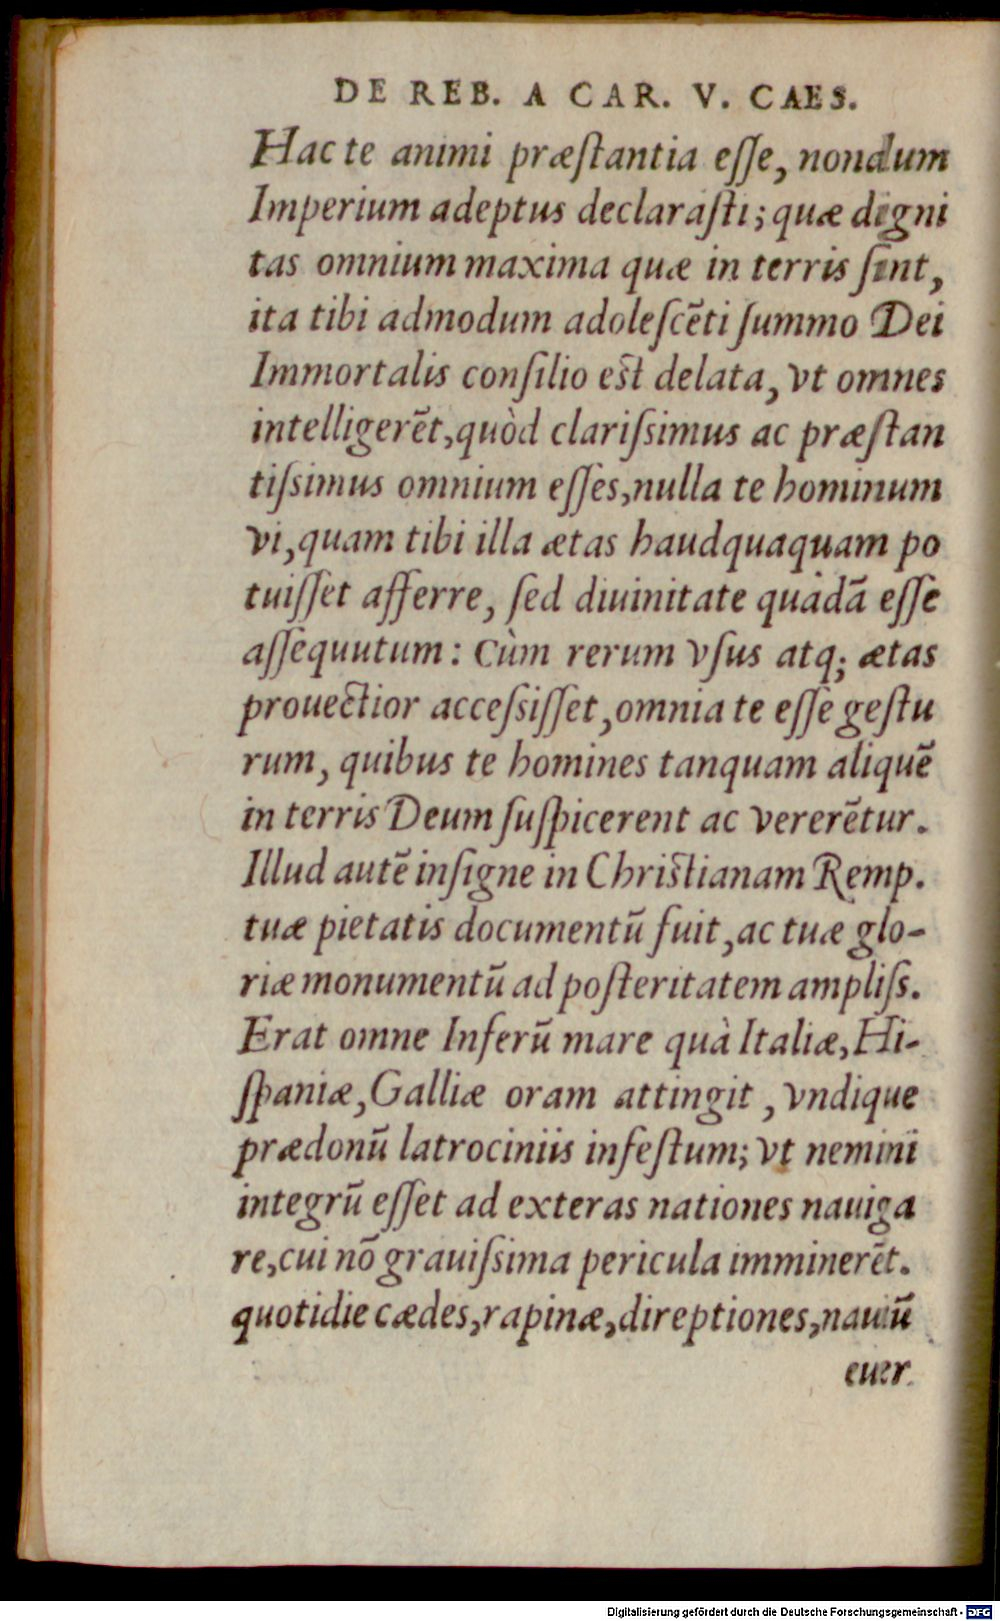 DE REB. A CAR. V. CAES.
Hac te animi præſtantia eſſe, nondum
Imperium adeptus declaraſti; quæ digni
tas omnium maxima quæ in terris ſint,
ita tibi admodum adoleſcẽti ſummo Dei
Immortalis conſilio eſt delata, vt omnes
intelligerẽt, quòd clariſsimus ac præſtan
tiſsimus omnium eſſes, nulla te hominum
vi, quam tibi illa ætas haudquaquam po
tuiſſet afferre, ſed diuinitate quadã eſſe
aſſequutum: Cùm rerum vſus atq; ætas
prouectior acceſsiſſet, omnia te eſſe geſtu
rum, quibus te homines tanquam aliquẽ
in terris Deum ſuſpicerent ac vererẽtur.
Illud autẽ inſigne in Chriſtianam Remp.
tuæ pietatis documentũ fuit, ac tuæ glo-
riæ monumentũ ad poſteritatem ampliſs.
Erat omne Inferũ mare quà Italiæ, Hi-
ſpaniæ, Galliæ oram attingit, vndique
prædonũ latrociniis infeſtum; vt nemini
integrũ eſſet ad exteras nationes nauiga
re, cui nõ grauiſsima pericula imminerẽt.
quotidie cædes, rapinæ, direptiones, nauiũ
euer.
Digitalisierung gefördert durch die Deutsche Forschungsgemeinschaft - DFG